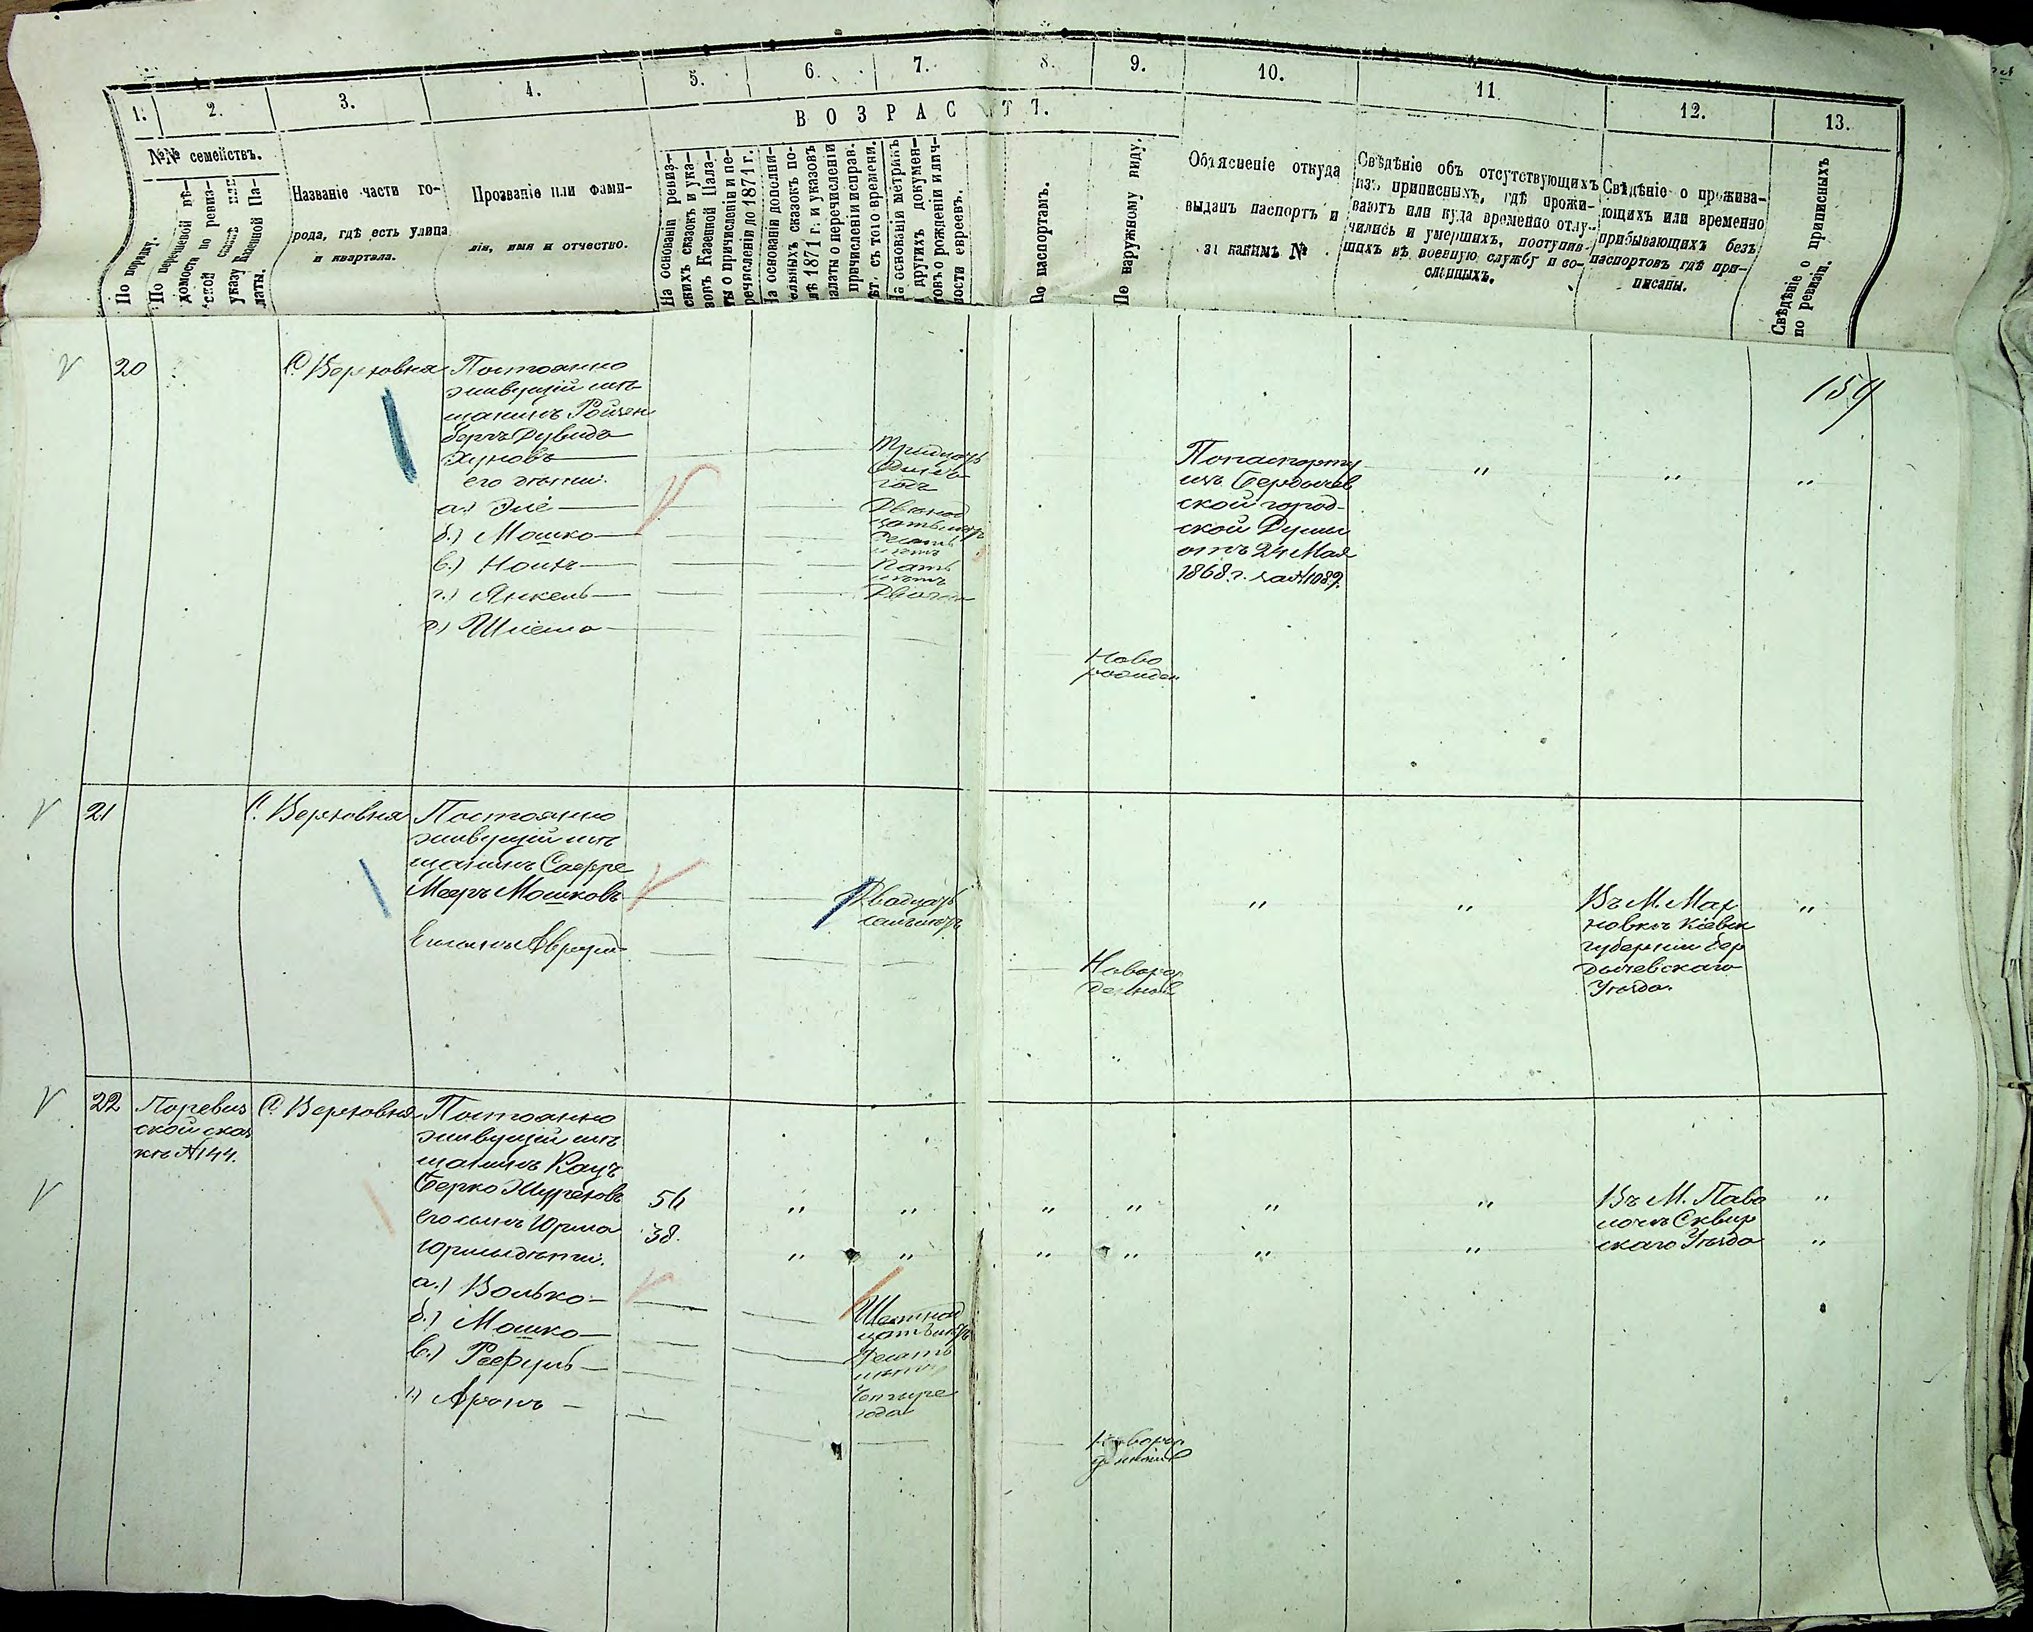 1. 2. 3. 4. 5. 6. 7. 8. 9. 10. 11. 12. 13.
ВОЗРАСТЪ.
№№ семействъ.
По порядк.
По
домости по ревиз-
ской сказкѣ или
указу Казенной Па-
латы.
Названіе части го-
рода, гдѣ есть улица
и квартала.
Прозваніе или фами-
лія, имя и отчество.
На основаніи ревиз-
скихъ сказокъ и ука-
зовъ Казенной Пала-
ты о причисленіи и пе-
речисленіи по 1871 г.
На основаніи дополни-
тельныхъ сказокъ по-
слѣ 1871 г. и указовъ
палаты о перечисленіи
и причисленіи исправ.
лѣт. съ того времени.
На основаніи метрикъ
и другихъ докумен-
товъ о рожденіи и лич-
ности евреевъ.
По паспортамъ.
По наружному виду.
Объясненіе откуда
выданъ паспортъ и
за какимъ №
Свѣдѣніе объ отсутствующихъ
изъ приписныхъ, гдѣ прожи-
ваютъ или куда временно отлу-
чились и умершихъ, поступив-
шихъ въ военную службу и со-
сланныхъ.
Свѣдѣніе о прожива-
ющихъ или временно
прибывающихъ безъ
паспортовъ гдѣ при-
писаны.
Свѣдѣніе о приписныхъ
по ревизіи.
159
20
С. Верховня
Постоянно
живущій мѣ-
щанинъ Ройзен
бергъ Дувидъ
Хуновъ
его дѣти:
а.) Эле
б.) Мошко
в.) Ноихъ
г.) Янкель
д.) Шлема
Тридцать
одинъ
годъ
Двѣнад
цать лѣтъ
Десять
лѣтъ
Пять
лѣтъ
Два года
Ново
рожден
По паспорту
изъ Бердичев
ской город-
ской Думы
отъ 24 Мая
1868 г. за № 1089.
" " "
21
С. Верховня
Постоянно
живущій мѣ
щанинъ
Мееръ Мошковъ
Двадцать
семь лѣтъ
Новорож
денной
" "
Въ М. Мах
новкѣ Кіевск
губерніи Бер
дичевскаго
Уѣзда.
"
22
По ревиз
ской сказ
кѣ № 144.
С. Верховня
Постоянно
живущій мѣ
щанинъ Кацъ
Берко
его сынъ Юрма
Юрмы дѣти:
а.) Волько
б.) Мошко
в.)
г.) Аронъ
56
38.
" " " " " "
" " " " " "
Шестнад
цать лѣтъ
Десять
лѣтъ
Четыре
года
Новорож
Въ М. Паво
лочь Сквир
скаго Уѣзда
"
"